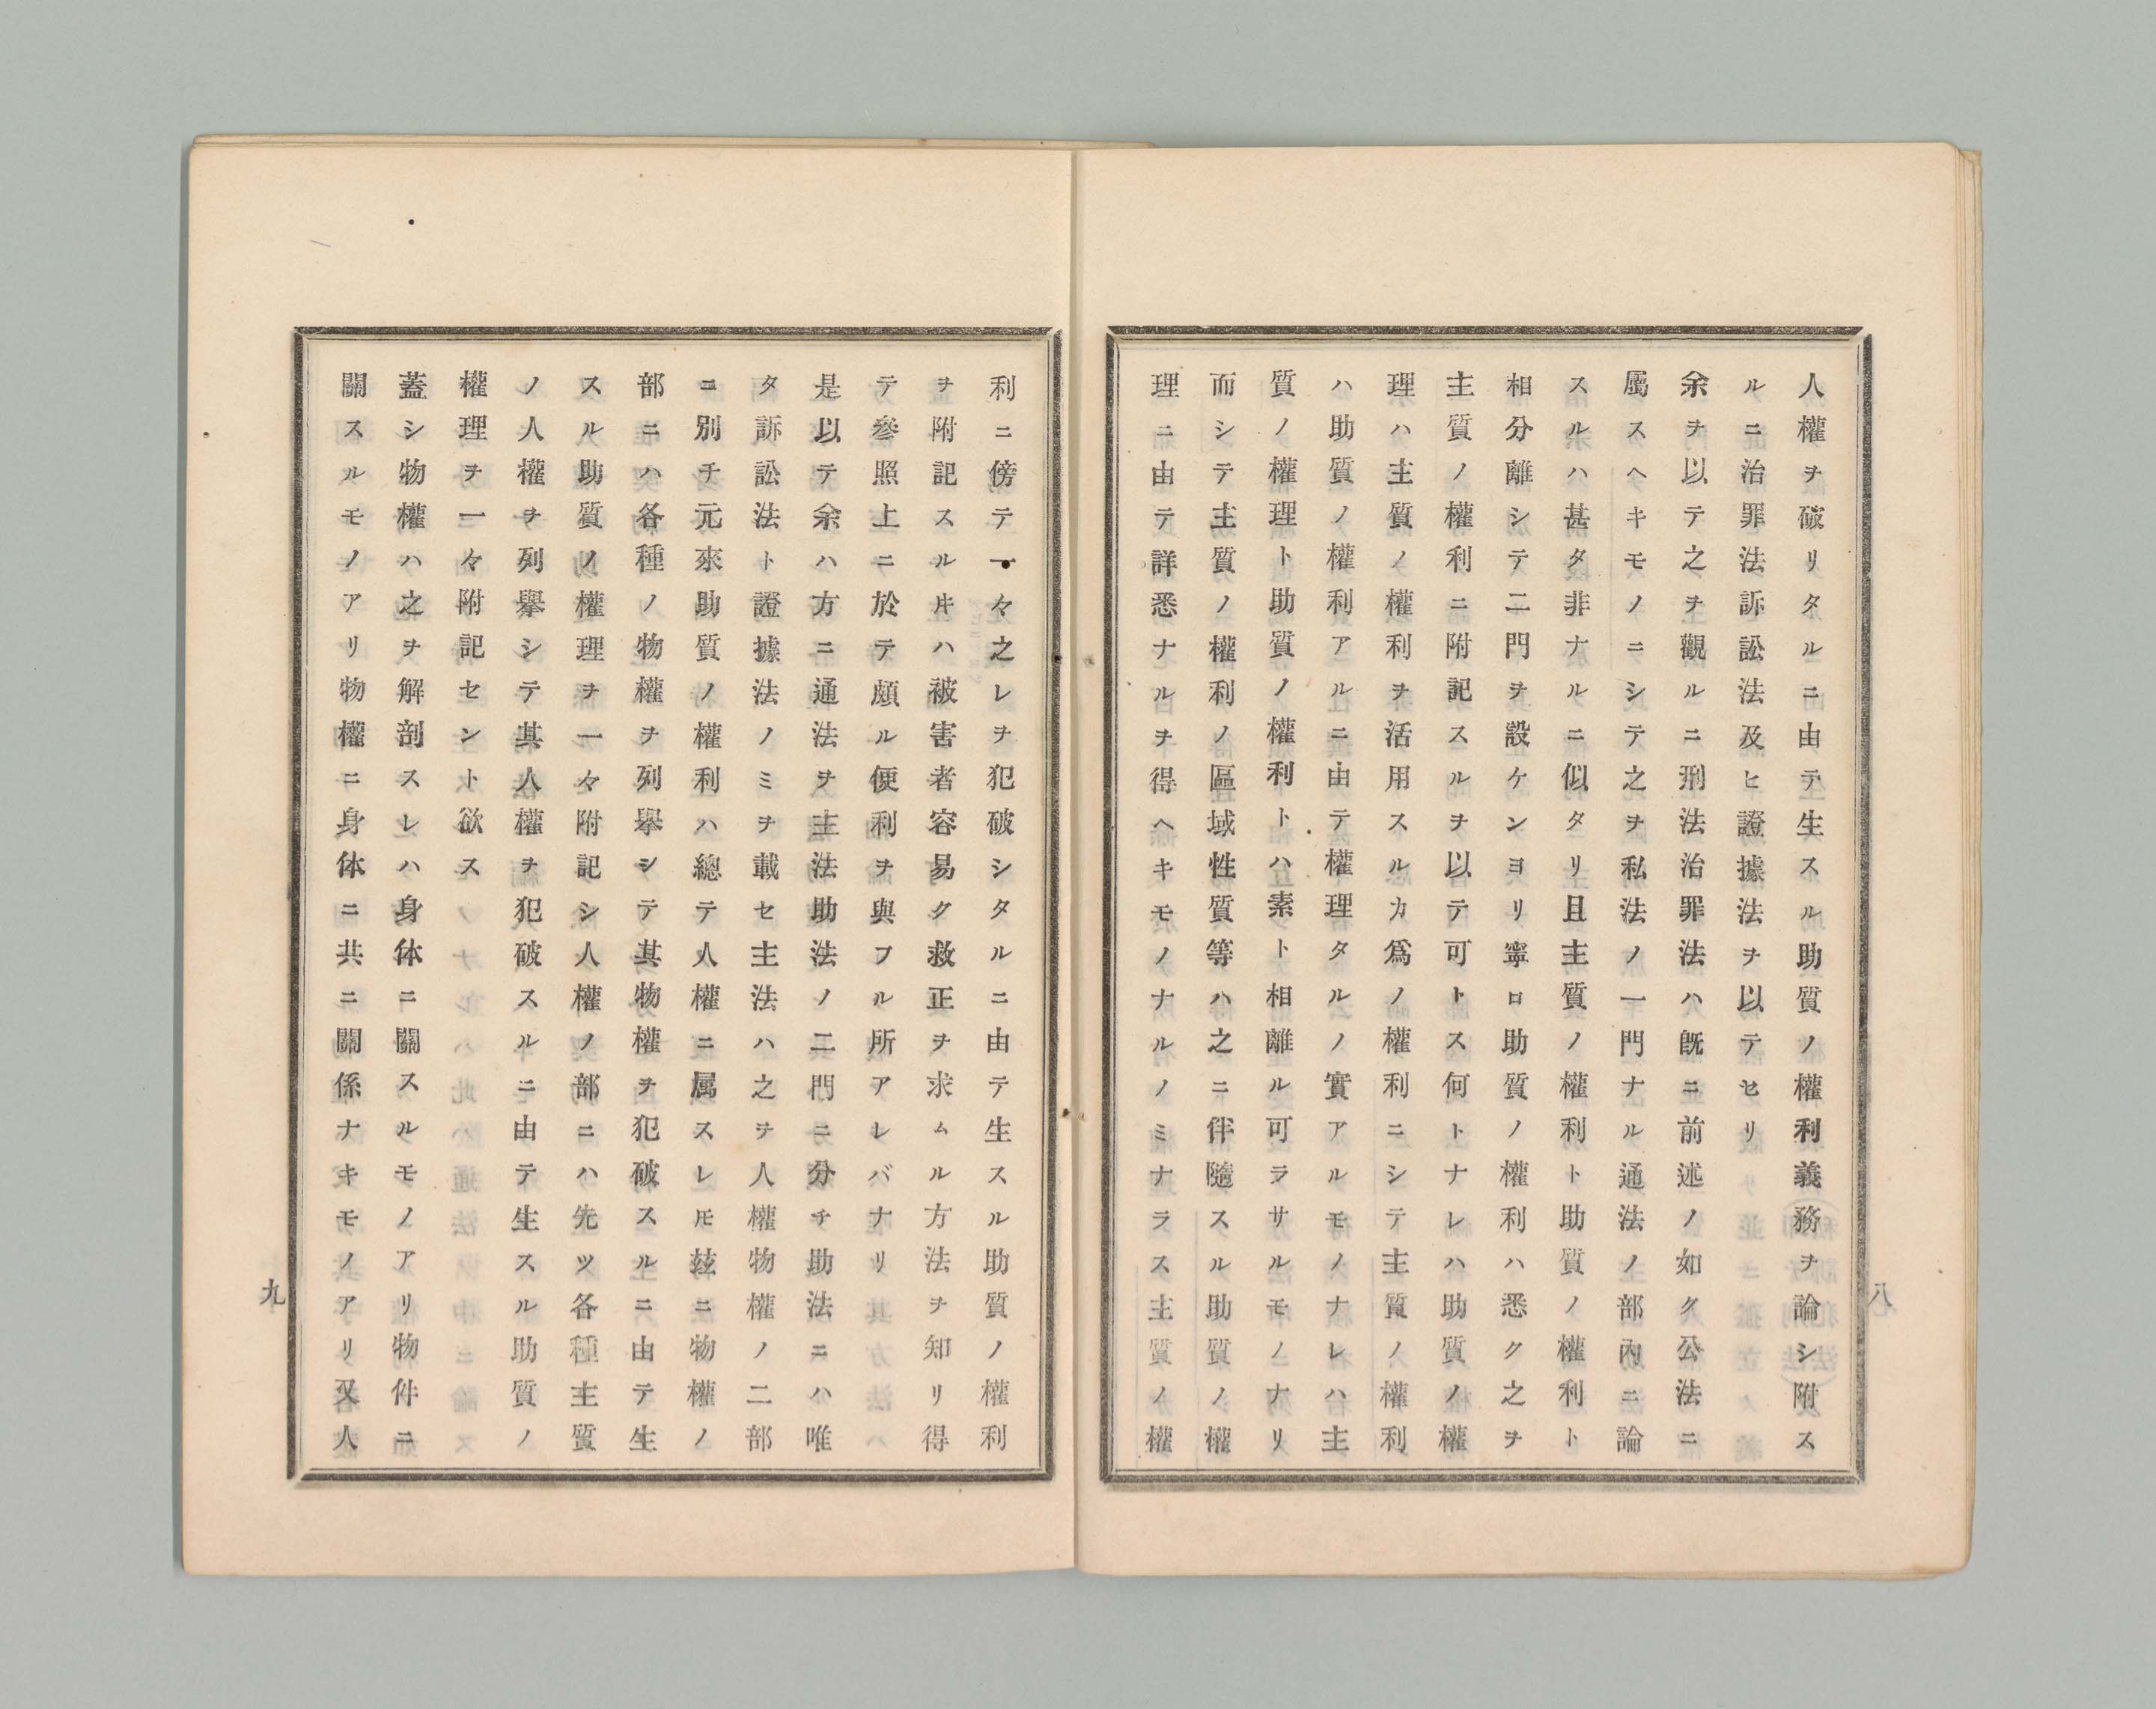 人權ヲ破リタルニ由テ生スル助質ノ權利義務ヲ論シ附ス
ルニ治罪法訴訟法及ヒ證據法ヲ以テセリ
余ヲ以テ之ヲ觀ルニ刑法治罪法ハ既ニ前述ノ如ク公法ニ
屬スヘキモノニシテ之ヲ私法ノ一門ナル通法ノ部內ニ論
スルハ甚タ非ナルニ似タリ且主質ノ權利ト助質ノ權利ト
相分離シテ二門ヲ設ケンヨリ寧ロ助質ノ權利ハ悉ク之ヲ
主質ノ權利ニ附記スルヲ以テ可トス何トナレハ助質ノ權
理ハ主質ノ權利ヲ活用スルカ爲ノ權利ニシテ主質ノ權利
ハ助質ノ權利アルニ由テ權理タルノ實アルモノナレハ主
質ノ權理ト助質ノ權利トハ素ト相離ル可ラサルモノナリ
而シテ主質ノ權利ノ區域性質等ハ之ニ伴隨スル助質ノ權
理ニ由テ詳悉ナルヲ得ヘキモノナルノミナラス主質ノ權
八
利ニ傍テ一々之レヲ犯破シタルニ由テ生スル助質ノ權利
ヲ附記スルキハ被害者容易ク救正ヲ求ムル方法ヲ知リ得
テ參照上ニ於テ頗ル便利ヲ與フル所アレバナリ
是以テ余ハ方ニ通法ヲ主法助法ノ二門ニ分チ助法ニハ唯
タ訴訟法ト證據法ノミヲ載セ主法ハ之ヲ人權物權ノ二部
ニ別チ元來助質ノ權利ハ總テ人權ニ属スレ𪜈玆ニ物權ノ
部ニハ各種ノ物權ヲ列擧シテ其物權ヲ犯破スルニ由テ生
スル助質ノ權理ヲ一々附記シ人權ノ部ニハ先ツ各種主質
ノ人權ヲ列擧シテ其人權ヲ犯破スルニ由テ生スル助質ノ
權理ヲ一々附記セント欲ス
蓋シ物權ハ之ヲ解剖スレハ身体ニ關スルモノアリ物件ニ
關スルモノアリ物權ニ身体ニ共ニ關係ナキモノアリ又人
九